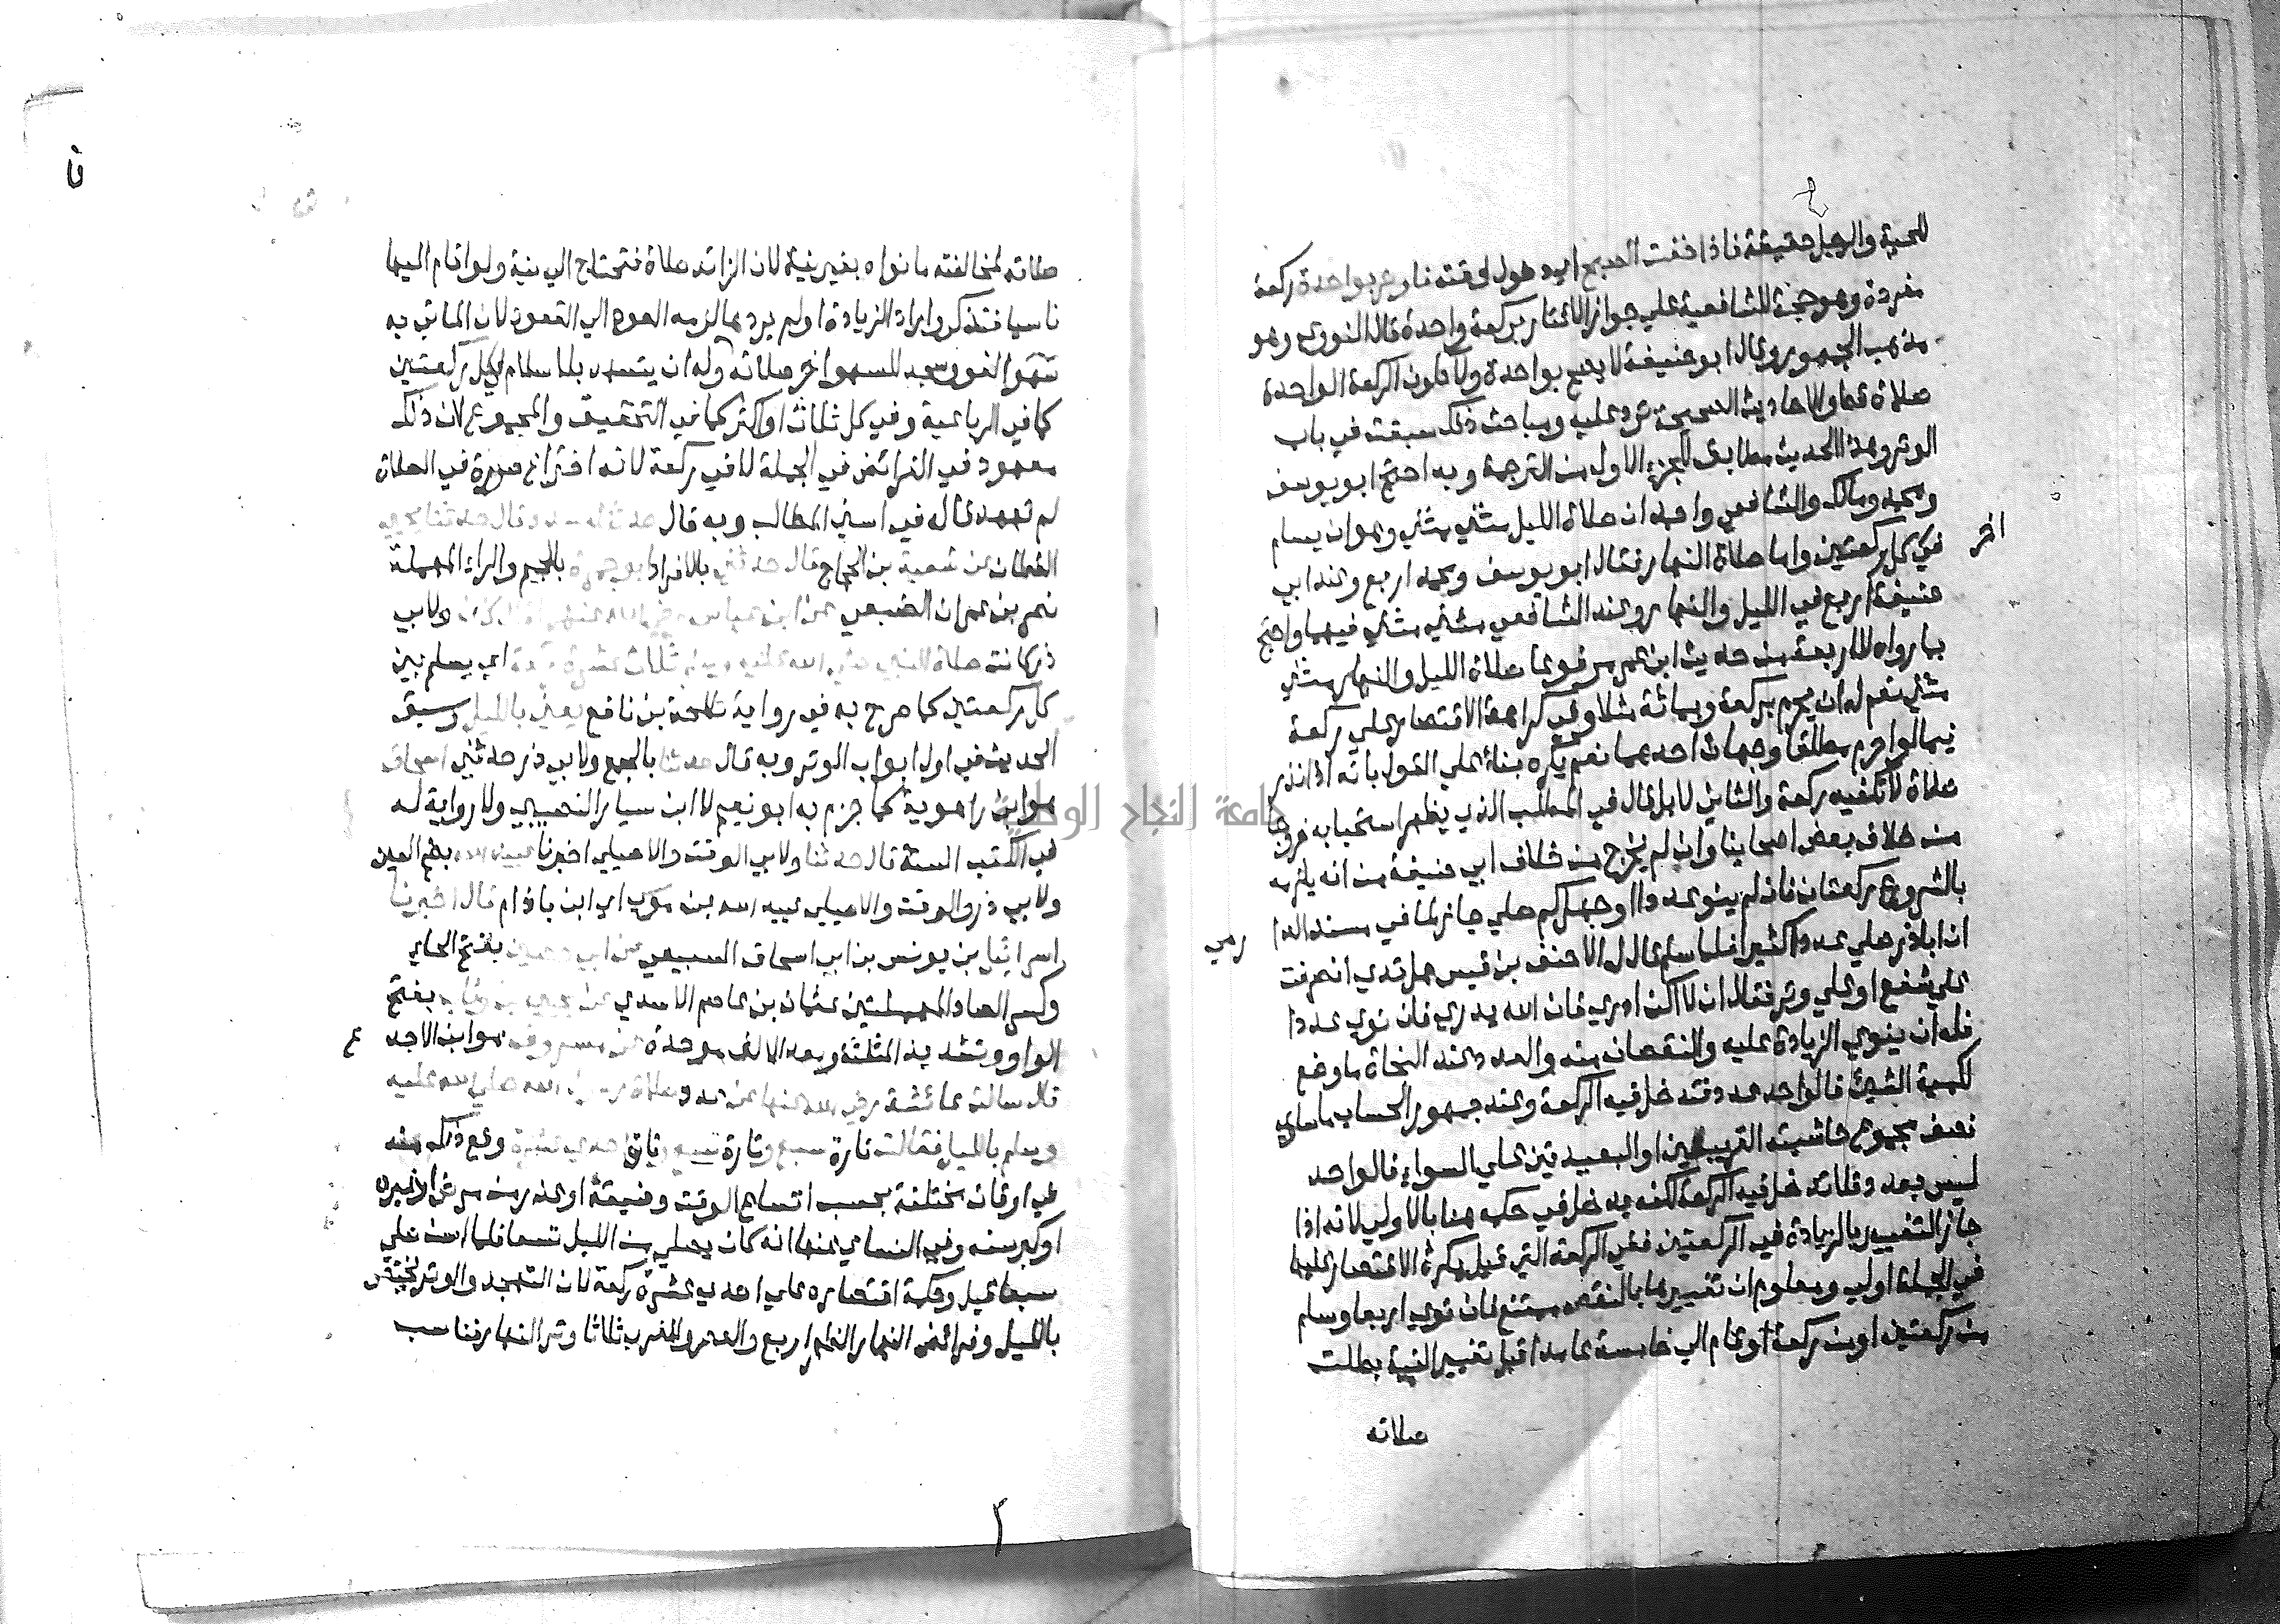 للحية والرجل حقيقة فاذا خفت الصبح اي دخول وقته فاوتر بواحدة ركعة
مفردة وهو حجة للشافعية علي جواز الايتار بركعة واحدة قال النووي وهو
مذهب الجمهور وقال ابو حنيفة لا يصح بواحدة ولا تكون الركعة الواحدة
صلاة قط والاحاديث الصحيحة ترد عليه ومباحث ذلك سبقت في باب
الوتر وهذا الحديث مطابق للجزء الاول من الترجمة وبه احتج ابو يوسف
ومحمد ومالك والشافعي واحمد ان صلاة الليل مثني مثني وهو ان يسلم
في كل ركعتين واما صلاة النهار فقال ابو يوسف ومحمد اربع وعند ابي
اخر
حنيفة اربع في الليل والنهار وعند الشافعي مثني مثني فيهما واحتج
بما رواه الاربعة من حديث ابن عمر مرفوعا صلاة الليل والنهار مثني
مثني نعم له ان يحرم بركعة وبمائة مثلا وفي كراهة الاقتصار علي ركعة
فيما لو احرم مطلقا وجهان احدهما نعم يكره بناء علي القول بانه اذا نذر
صلاة لا تكفيه ركعة والثاني لا بل قال في المطلب الذي يظهر استحبابه خروجا
من خلاف بعض اصحابنا وان لم يخرج من خلاف ابي حنيفة من انه يلزمه
بالشروع ركعتان فان لم ينو عددا او جهل كم صلي جاز لما في مسند الدا
رمي
ان اباذر صلي عددا كثيرا فلما سلم قال له الاحنف بن قيس هل تدري انصرفت
علي شفع او علي وتر فقال ان لا اكن ادري فان الله يدري فان نوي عددا
فله ان ينوي الزيادة عليه والنقصان منه والعدد عند النحاة ما وضع
لكمية الشيئ فالواحد عدد فتدخل فيه الركعة وعند جمهور الحساب ما ساوي
نصف مجموع حاشيته القريبتين او البعيدتين علي السواء فالواحد
ليس بعدد فلا تدخل فيه الركعة لكنه يدخل في حكمه هنا بالاولي لانه اذا
جاز التغيير بالزيادة في الركعتين ففي الركعة التي قيل يكره الاقتصار عليها
في الجملة اولي ومعلوم ان تغييرها بالنقص ممتنع فان نوي اربعا وسلم
من ركعتين او من ركعة او قام الي خامسة عامدا قبل تغيير النية بطلت
صلاته
صلاته لمخالفته ما نواه بغير نية لان الزائد صلاة فتحتاج الي نية ولو قام اليها
ناسيا فتذكر واراد الزيادة او لم يردها لزمه العود الي القعود لان الماتي به
سهوا لغو وسجد للسهو اخر صلاته وله ان يتشهد بلا سلام في كل ركعتين
كما في الرباعية وفي كل ثلاث او اكثر كما في التحقيق والمجموع لان ذلك
معهود في الفرائض في الجملة لا في ركعة لانه اختراع صورة في الصلاة
لم تعهد قاله في اسني المطالب وبه قال حدثنا مسدد قال حدثنا يحيي
القطان عن شعبة بن الحجاج قال حدثني بالافراد ابو جمرة بالجيم والراء المهملة
نصر بن عمران الضبعي عن ابن عباس رضي الله عنهما قال كان ولابي
ذر كانت صلاة النبي صلي الله عليه وسلم ثلاث عشرة ركعة اي يسلم بين
كل ركعتين كما صرح به في رواية طلحة بن نافع يعني بالليل وسبق
الحديث في اول ابواب الوتر وبه قال حدثنا بالجمع ولابي ذر حدثني اسحاق
هو ابن راهوية كما جزم به ابو نعيم لا ابن سيار النصيبي ولا رواية له
في الكتب الستة قال حدثنا ولابي الوقت والاصيلي اخبرنا عبيد الله بضم العين
ولابي ذر والوقت والاصيلي عبيد الله بن موسي اي ابن باذام قال اخبرنا
اسرائيل بن يونس بن ابي اسحاق السبيعي عن ابي حصين بفتح الحاء
وكسر الصاد المهملتين عثمان بن عاصم الاسدي عن يحيي بن وثاب بفتح
الواو وتشديد المثلثة وبعد الالف موحدة عن مسروق هو ابن الاجدع
قال سالت عائشة رضي الله عنها عن عدد صلاة رسول الله صلي الله عليه
وسلم بالليل فقالت تارة سبع وتارة تسع وتارة احدي عشرة وقع ذلك منه
في اوقات مختلفة بحسب اتساع الوقت وضيقه او عذر من مرض او غيره
او كبر سنه وفي النسائي عنها انه كان يصلي من الليل تسعا فلما اسن صلي
سبعا قيل وحكمة اقتصاره علي احدي عشرة ركعة لان التهجد والوتر يختص
بالليل وفرائض النهار الظهر اربع والعصر والمغرب ثلاثا وتر النهار فناسب